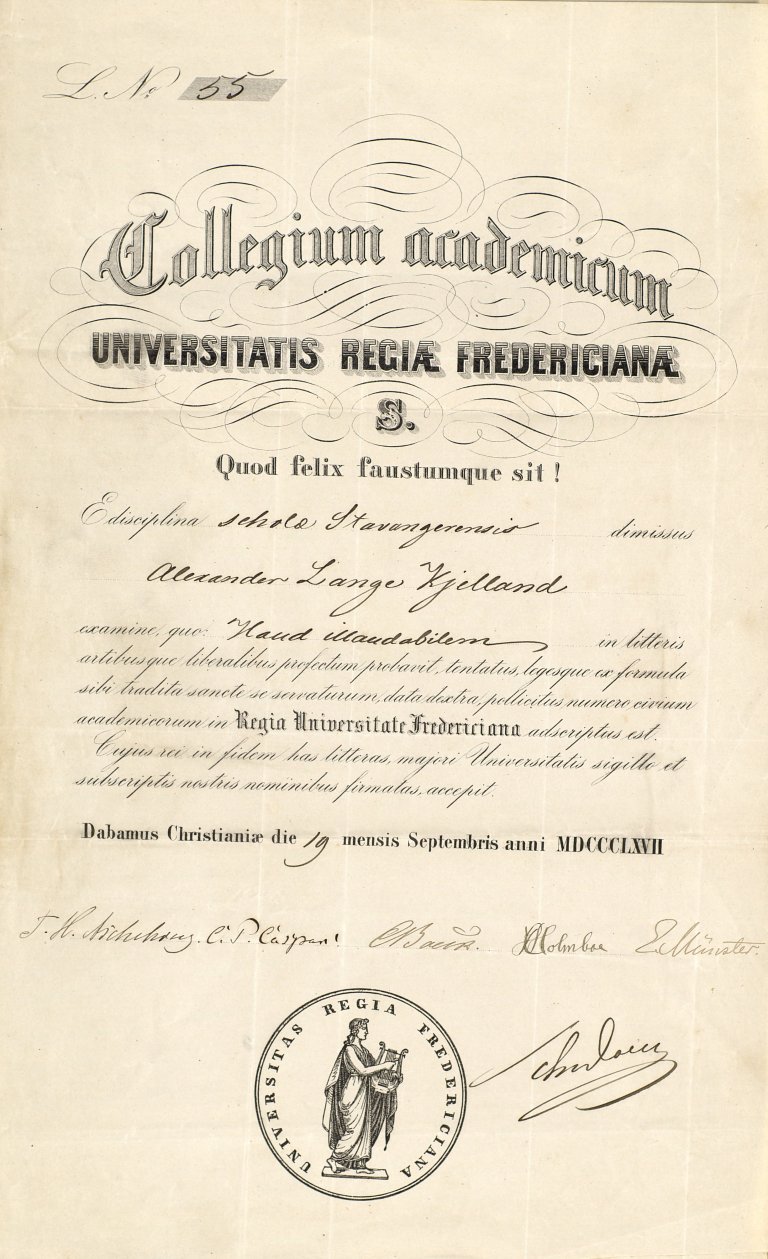 L. No 55
Collegium academicum
UNIVERSITATIS REGIÆ FREDERICIANÆ
S.
Quod felix faustumque sit!
E disciplina scholæ Stavangerensis dimissus
Alexander Lange Kjelland
examine, quo: Haud illaudabilem in litteris
artibusque liberalibus profectum probavit, tentatus, legesque ex formula
sibi tradita sancte se servaturum, data dextra, pollicitus numero civium
academicorum in Regia Universitate Fredericiana adscriptus est.
Cujus rei in fidem has litteras, majori Universitatis sigillo et
subscriptis nostris nominibus firmatas, accepit.
Dabamus Christianiæ die 19 mensis Septembris anni MDCCCLXVII
C. P. Caspari Holmboe E. Münster.
UNIVERSITAS REGIA FREDERICIANA